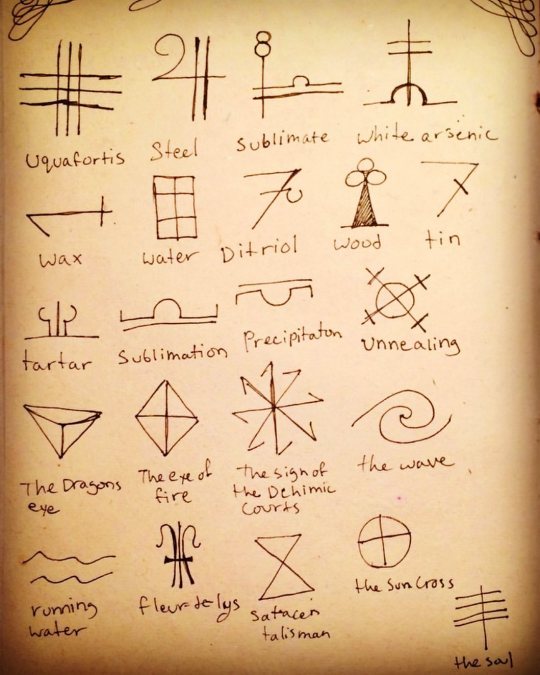 Uquafortis
Steel
Sublimate
White arsenic
Wax
Water
Ditriol
Wood
tin
tartar
Sublimation
Precipitaton
Unnealing
The Dragons
eye
The eye of
fire
The sign of
the Dehimic
Courts
the wave
running
water
fleur-de-lys
Satacen
talisman
the sun cross
the soul